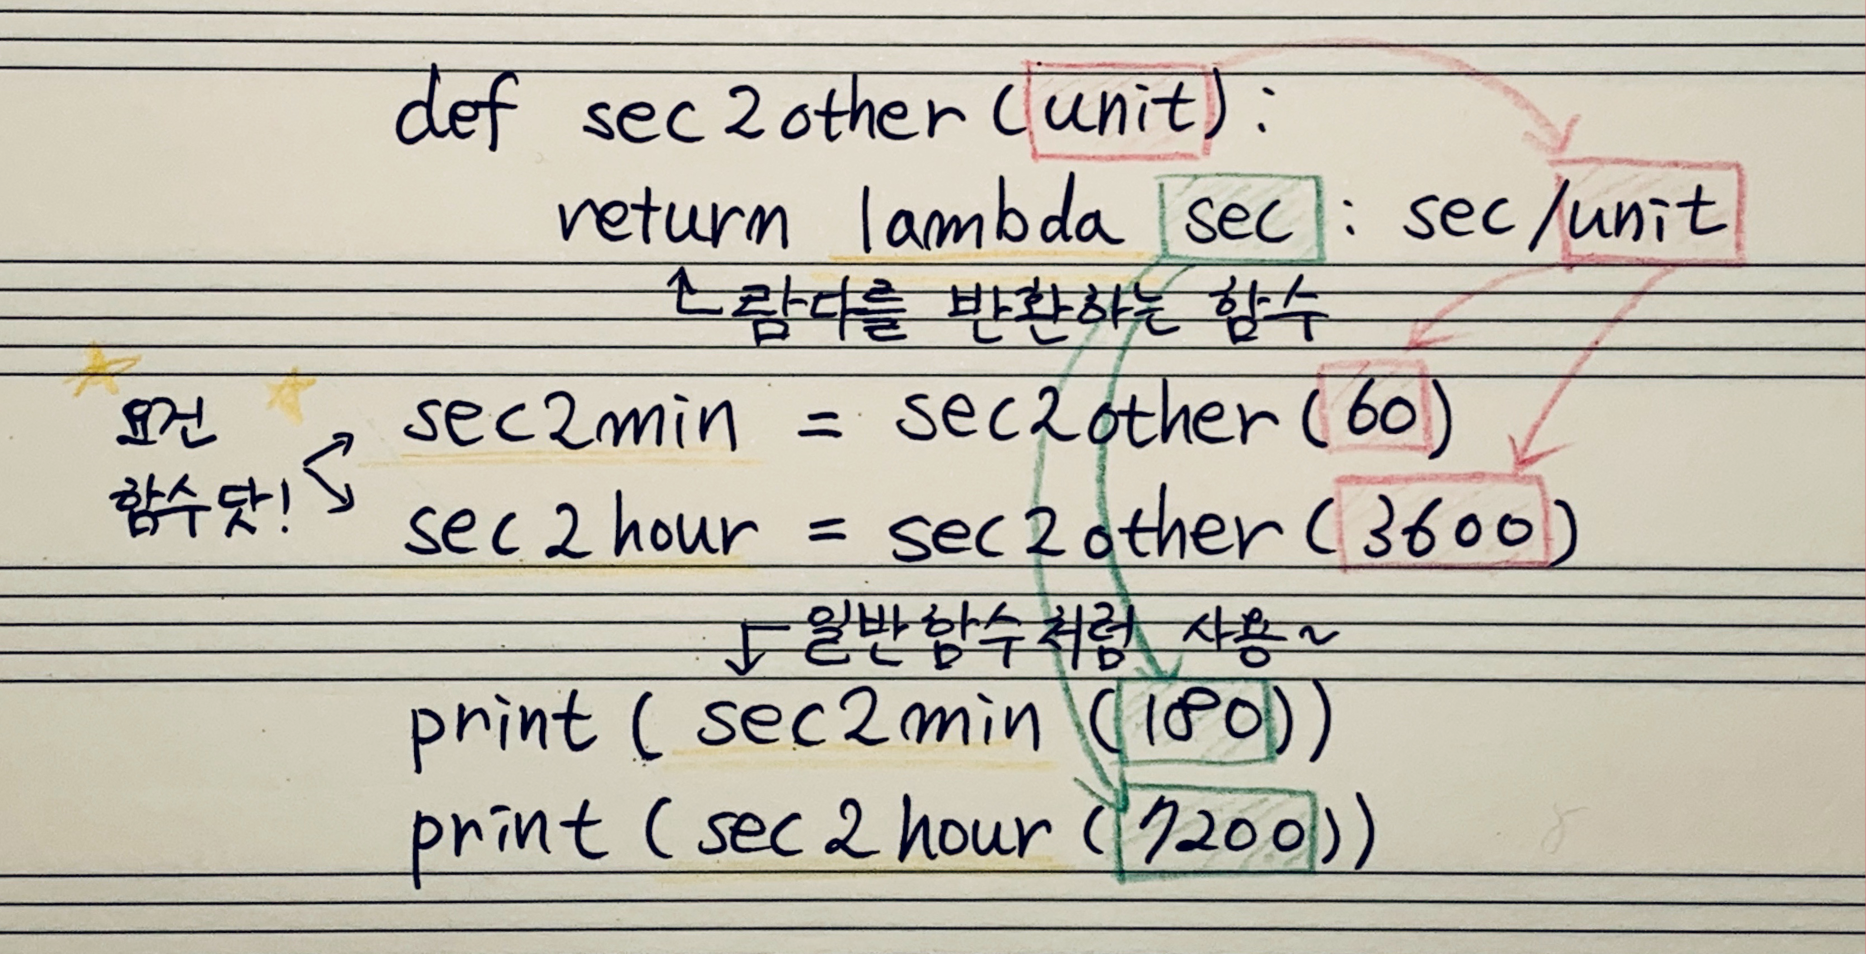 def sec2other(unit):
return lambda sec : sec/unit
람다를 반환하는 함수
요건
함수닷!
sec2min = sec2other(60)
sec2hour = sec2other(3600)
일반함수처럼 사용~
print(sec2min(180))
print(sec2hour(7200))